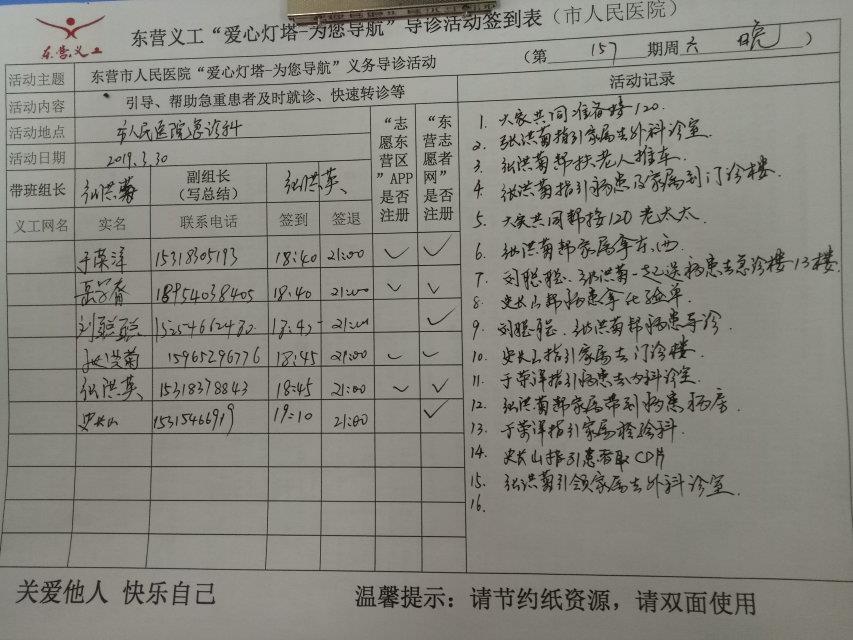 东营义工“爱心灯塔-为您导航”导诊活动签到表（市人民医院）
东营义工
（第 157 期周六 晚）
活动主题 东营市人民医院“爱心灯塔-为您导航”义务导诊活动
活动记录
活动内容 引导、帮助急重患者及时就诊、快速转诊等
活动地点 市人民医院急诊科
活动日期 2019.3.30
带班组长 张洪菊 副组长（写总结） 张洪英
“志愿东营区”APP是否注册
“东营志愿者网”是否注册
义工网名 实名 联系电话 签到 签退
于荣洋 15318305193 18:40 21:00 ✓ ✓
岳学春 18954038405 18:40 21:00 ✓ ✓
刘聪聪 15254662480 18:45 21:00 ✓
张洪菊 15965296776 18:45 21:00 ✓ ✓
张洪英 15318378843 18:45 21:00 ✓ ✓
史长山 15315466919 19:10 21:00 ✓
1. 大家共同准备接120.
2. 张洪菊指引家属去外科诊室.
3. 张洪菊帮扶老人推车.
4. 张洪菊指引病患及家属到门诊楼.
5. 大家共同帮接120老太太.
6. 张洪菊帮家属拿东西.
7. 刘聪聪、张洪菊一起送病患去急诊楼13楼.
8. 史长山帮病患拿化验单.
9. 刘聪聪、张洪菊帮病患导诊
10. 史长山指引家属去门诊楼.
11. 于荣洋指引病患去内科诊室.
12. 张洪菊帮家属带到病患病房.
13. 于荣洋指引家属检验科.
14. 史长山指引患者取CD片
15. 张洪菊引领家属去外科诊室.
16.
关爱他人 快乐自己
温馨提示：请节约纸资源，请双面使用